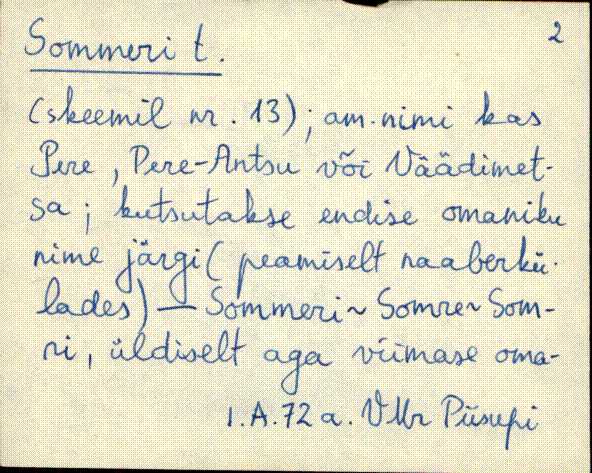 Sommeri t. 2
(skeemil nr. 13); am. nimi kas
Pere, Pere-Antsu või Väädimet-
sa; kutsutakse endise omaniku
nime järgi (peamiselt naaberkü-
lades) — Sommeri ~ Somre ~ Som-
ri, üldiselt aga viimase oma-
1.A.72 a. VMr Piisupi